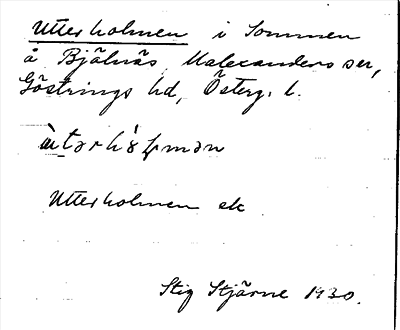 Utterholmen i Sommen
å Bjälnäs Malexanders sn,
Göstrings hd, Österg. l.
Utterholmen ek
Stig Stjärne 1930.